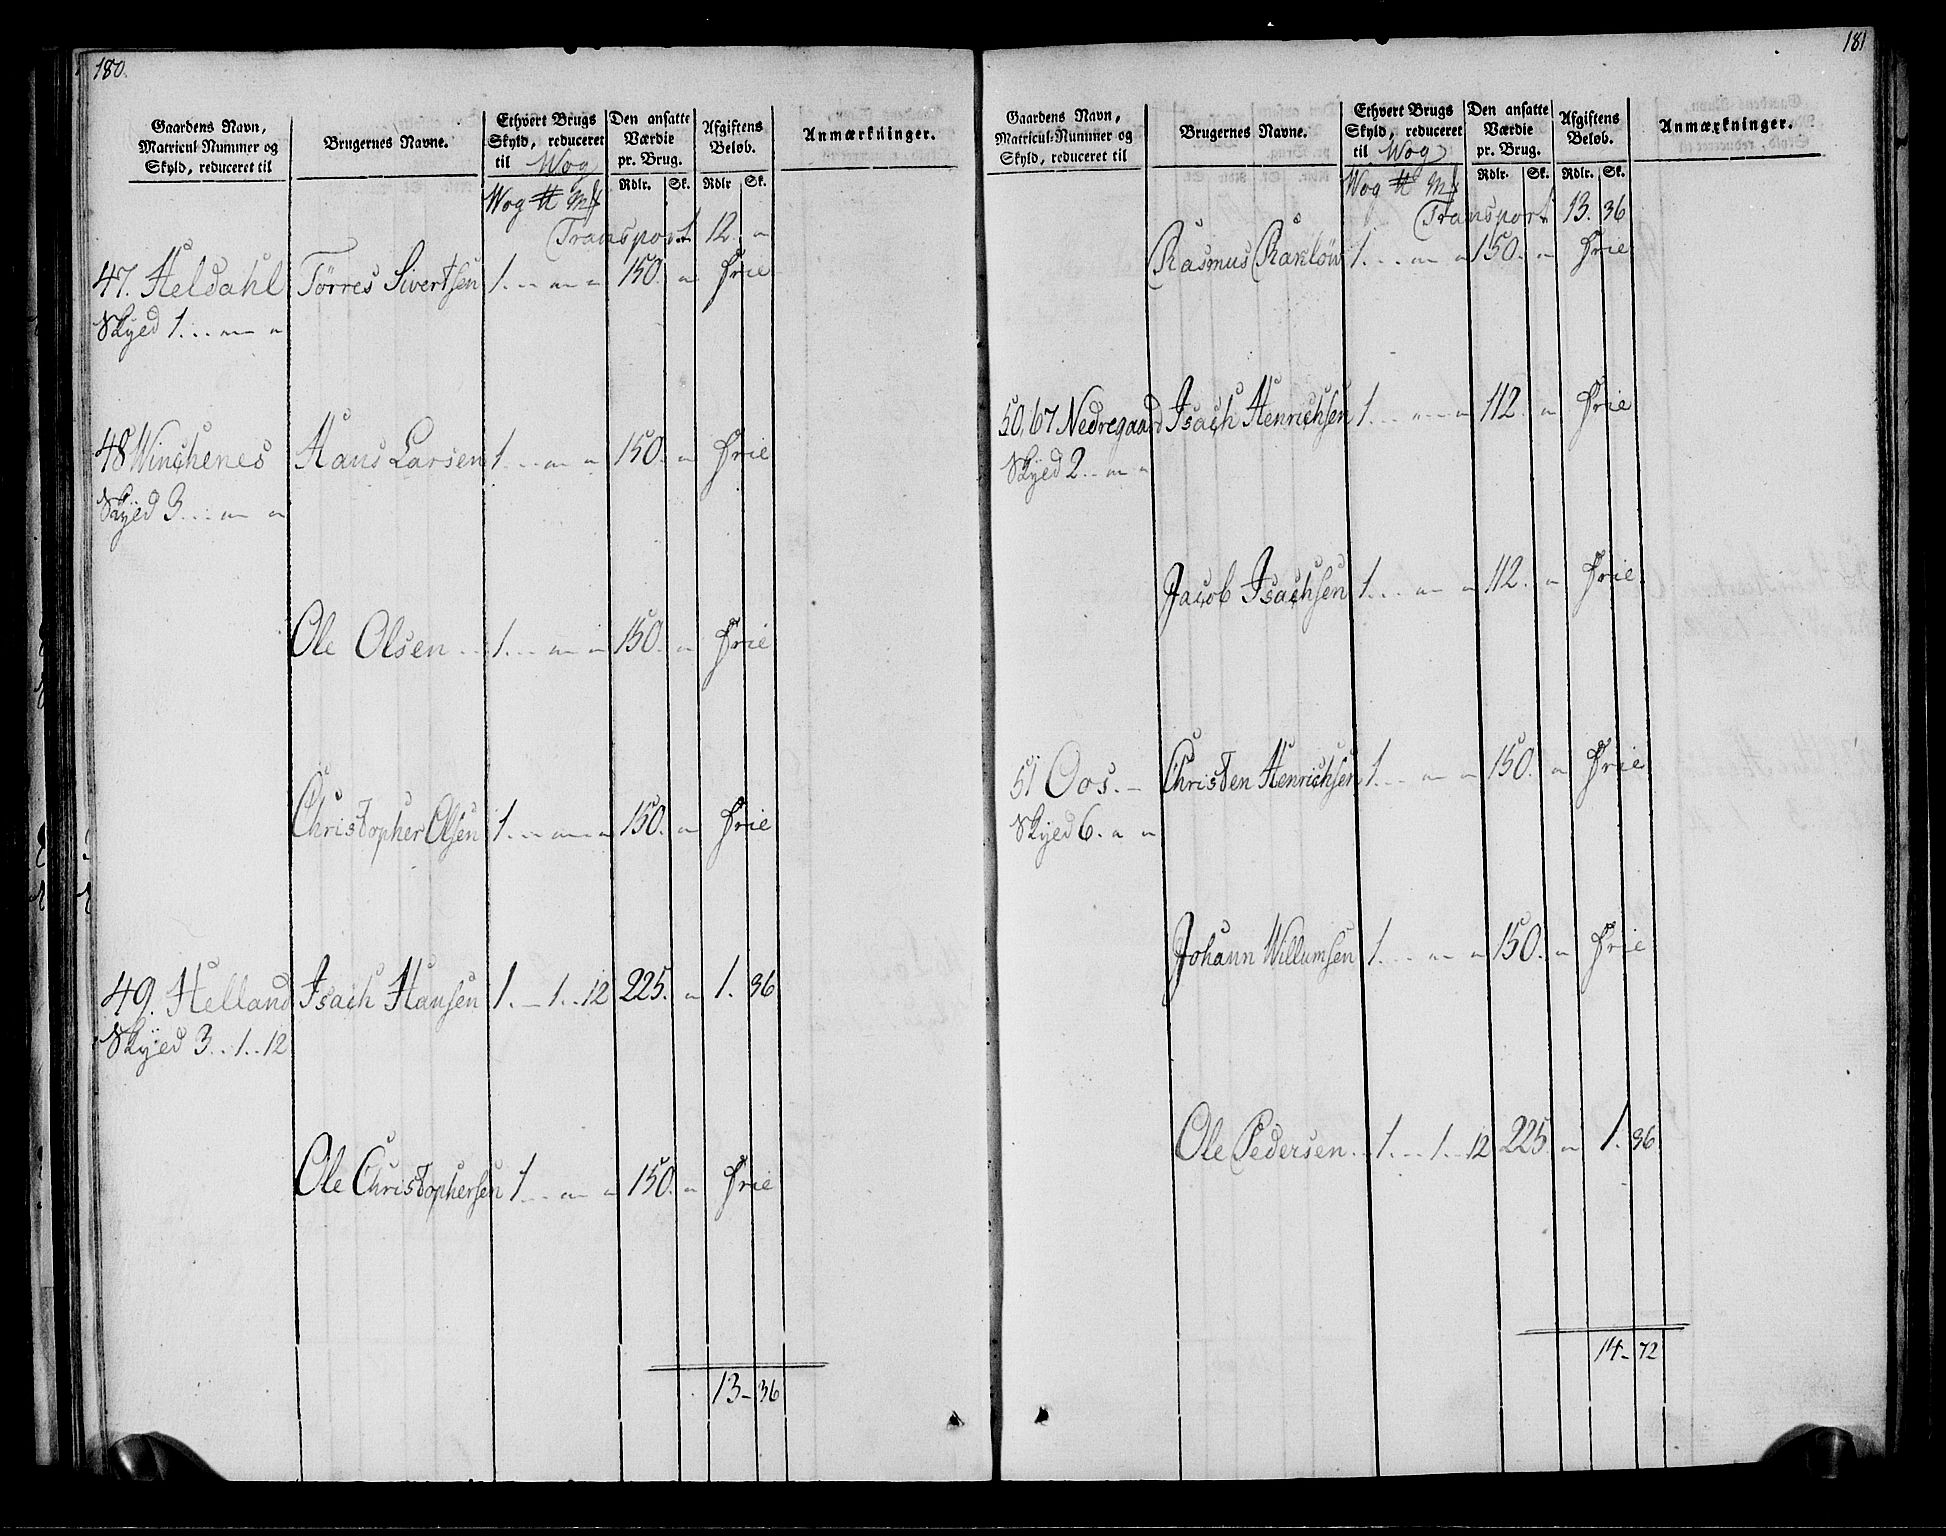 180.
Gaardens Navn, Matricul-Nummer og Skyld, reduceret til
Brugernes Navne.
Ethvert Brugs Skyld, reduceret til Wog
Den ansatte Værdie pr. Brug.
Afgiftens Beløb.
Anmærkninger.
Wog ℔ Mk Rdlr. Sk. Rdlr Sk.
Transport 12. "
47. Heldahl Törres Sivertsen 1. .. " " 150. " Frie
Skyed 1. .. " "
48 Winchenes Hans Larsen 1. .. " " 150. " Frie
Skyed 3. .. " "
Ole Olsen .. 1. .. " " 150. " Frie
Christopher Olsen 1. .. " " 150. " Frie
49. Helland Isach Hansen 1. _ 1.. 12 225. " 1. 36
Skyed 3.. 1.. 12
Ole Christophersen 1. .. " " 150. " Frie
13 - 36
181
Gaardens Navn, Matricul-Nummer og Skyld, reduceret til
Brugernes Navne.
Ethvert Brugs Skyld, reduceret til Wog
Den ansatte Værdie pr. Brug.
Afgiftens Beløb.
Anmærkninger.
Wog ℔ Mk Rdlr. Sk. Rdlr. Sk.
Transport 13. 36
Rasmus 1. .. " " 150. " Frie
50, 67 Nedregaard Isach Henrichsen 1. .. " " 112. " Frie
Skyed 2. .. " "
Jacob Isachsen 1. .. " " 112. " Frie
51 Oos. - Christen Henrichsen 1. .. " " 150. " Frie
Skyed 6. " "
Johann Willumsen 1. .. " " 150. " Frie
Ole Pedersen .. 1. .. 1.. 12 225 " 1. 36
14 - 72